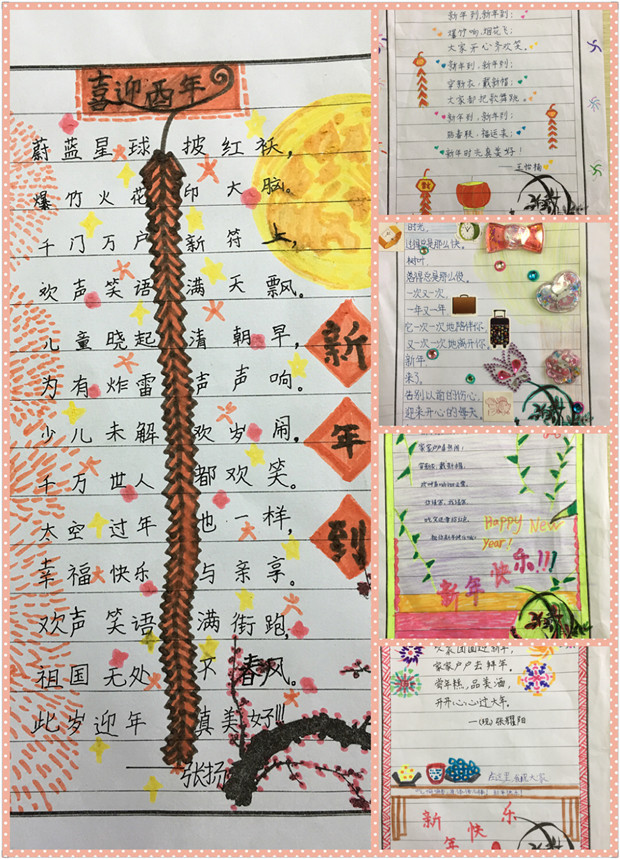 喜迎酉年
蔚蓝星球 披红袄，
爆竹火花 印大脑。
千门万户 新符上，
欢声笑语 满天飘。
儿童晓起 清朝早，
为有炸雷 声声响。
少儿未解 欢岁闹，
千万世人 都欢笑。
太空过年 也一样，
幸福快乐 与亲享。
欢声笑语 满街跑，
祖国无处 不春风。
此岁迎年 真美好!!!
——张扬
新年到
新年到，新年到；
爆竹响，烟花飞；
大家开心齐欢笑。
新年到，新年到；
穿新衣，戴新帽；
大家都把歌舞跳。
新年到，新年到；
新年时光真美好！
时光，
过得总是那么快。
树叶，
落得总是那么慢。
一次又一次，
一年又一年，
它一次一次地陪伴你，
又一次一次地离开你，
新年，
来了。
告别以前的伤心，
迎来开心的每天。
穿新衣，戴新帽，
Happy New
Year!
新年快乐!!!
大家团圆过新年，
家家户户去拜年。
尝年糕，品美酒，
开开心心过大年。
张耀阳
新年快乐